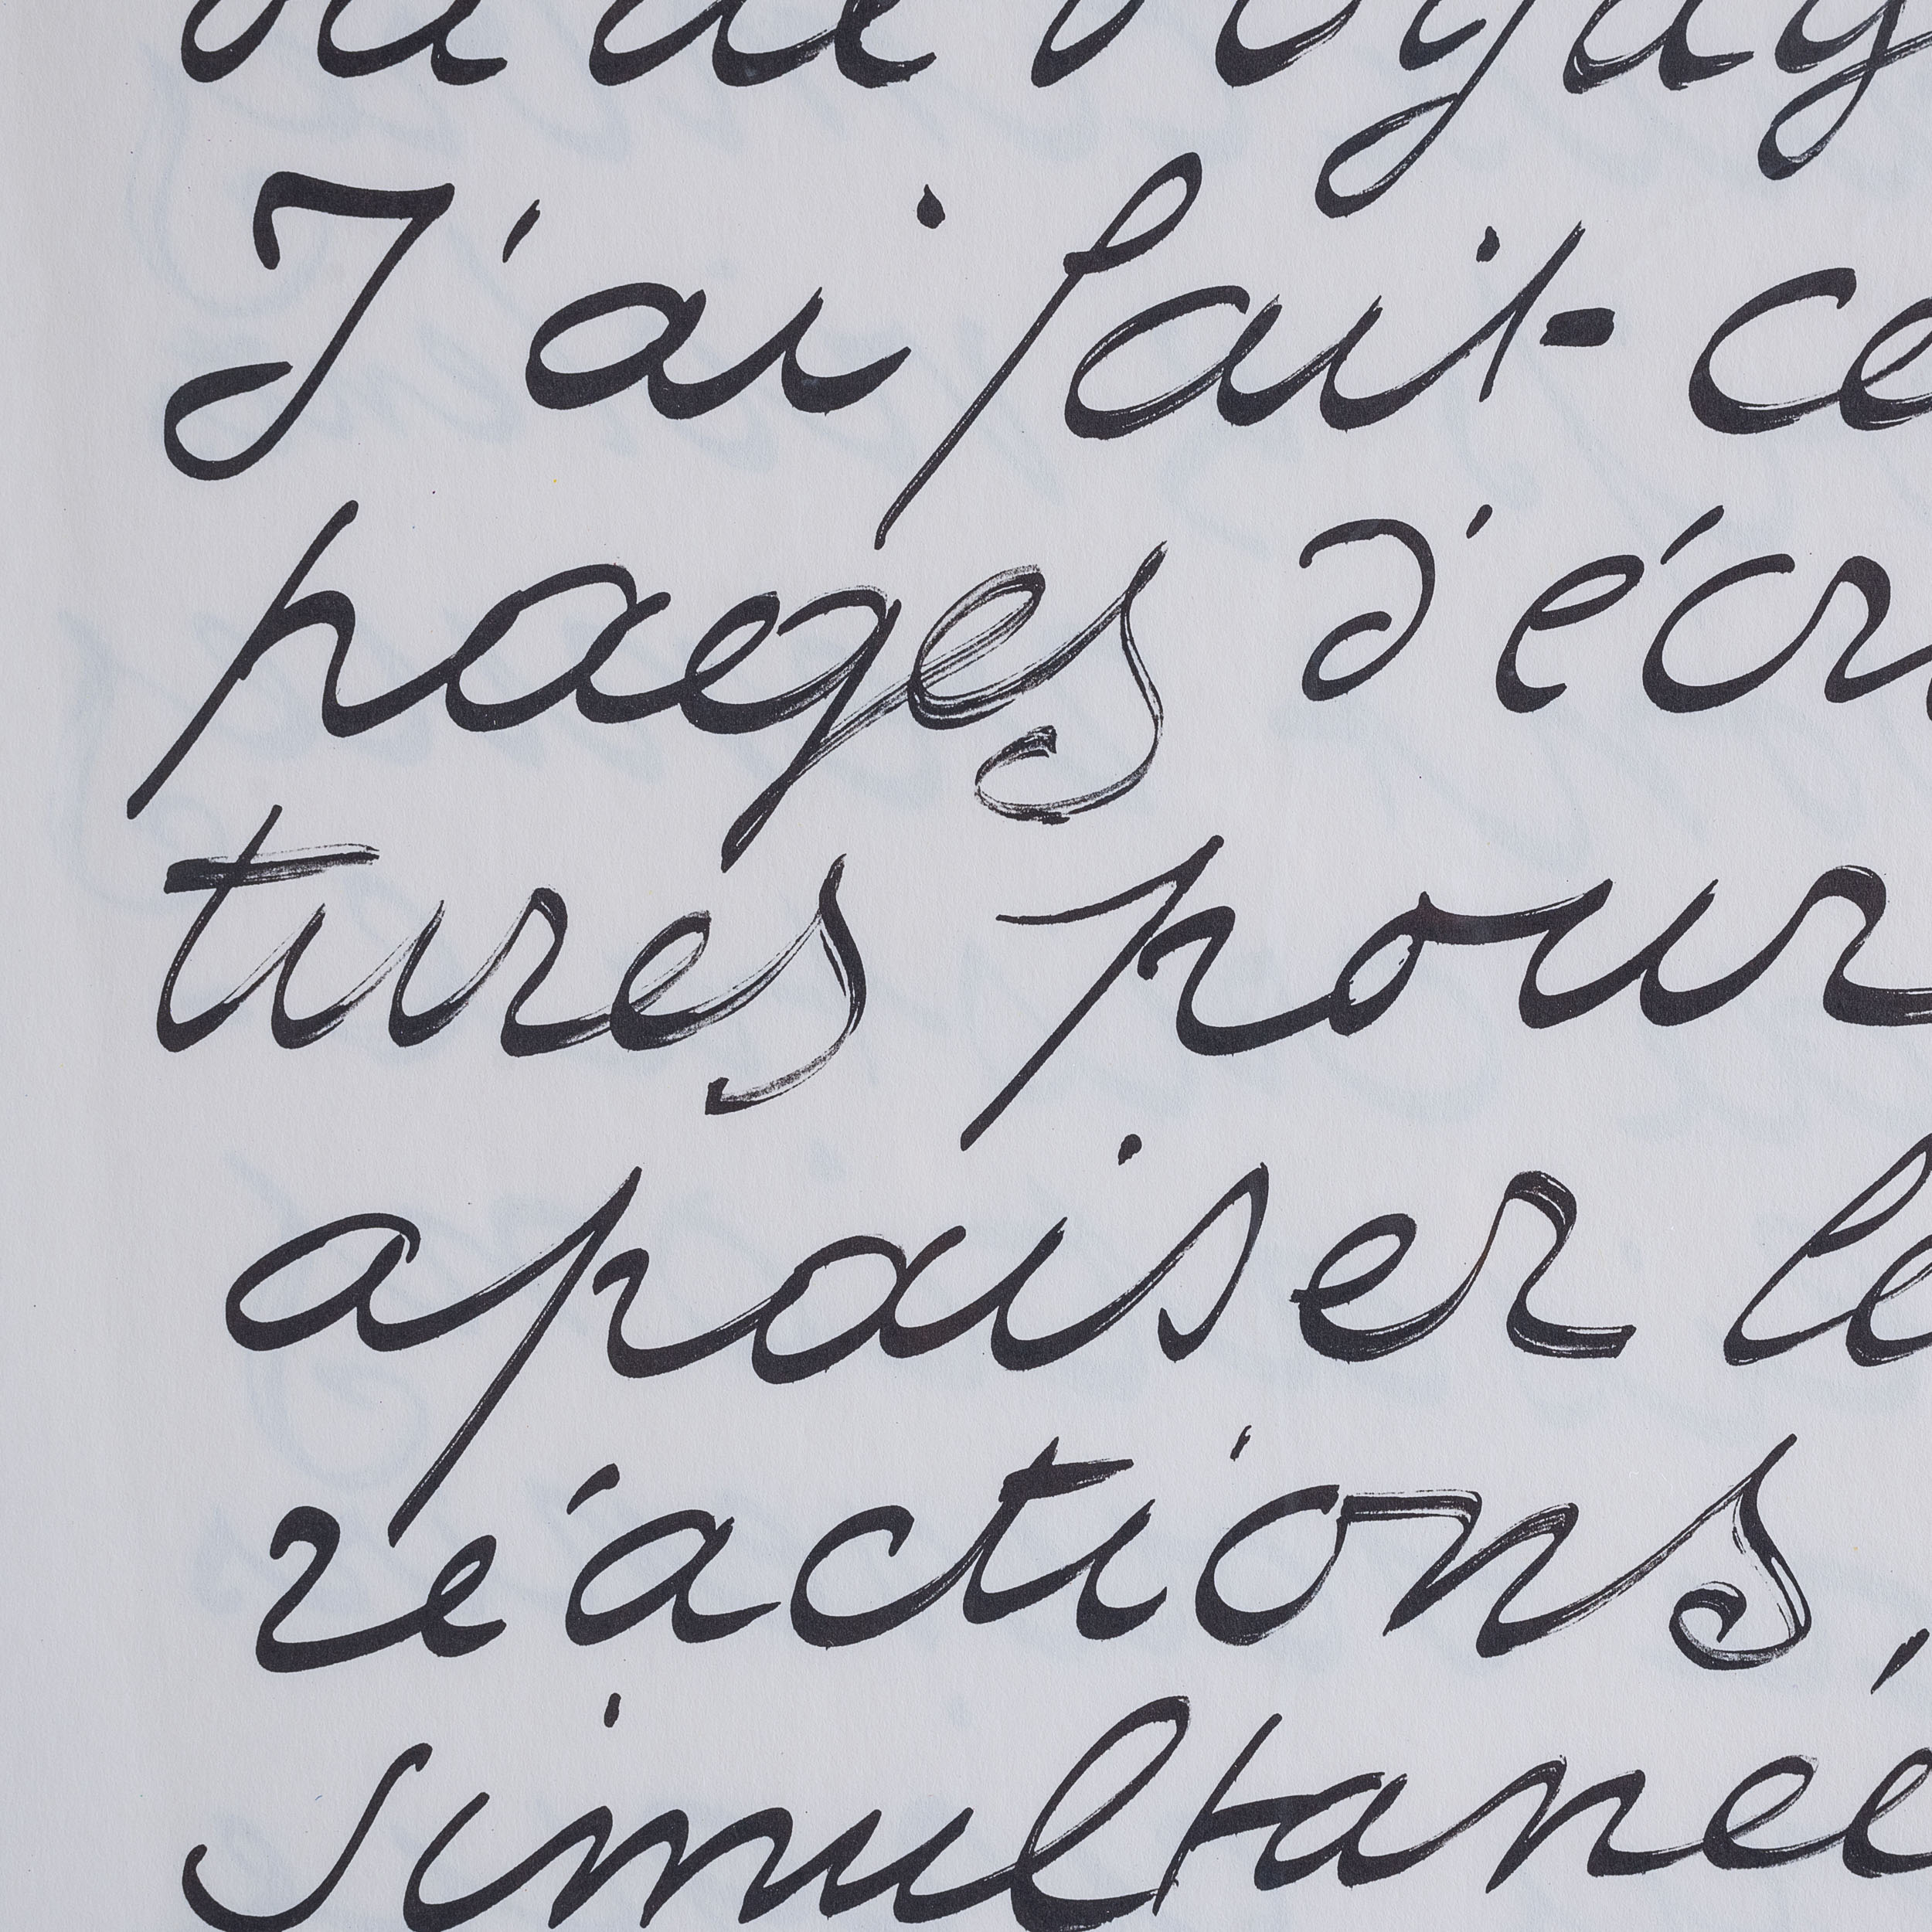 de voyag
J'ai fait ce
pages d'écr
tures pour
apaiser le
réactions,
simultané